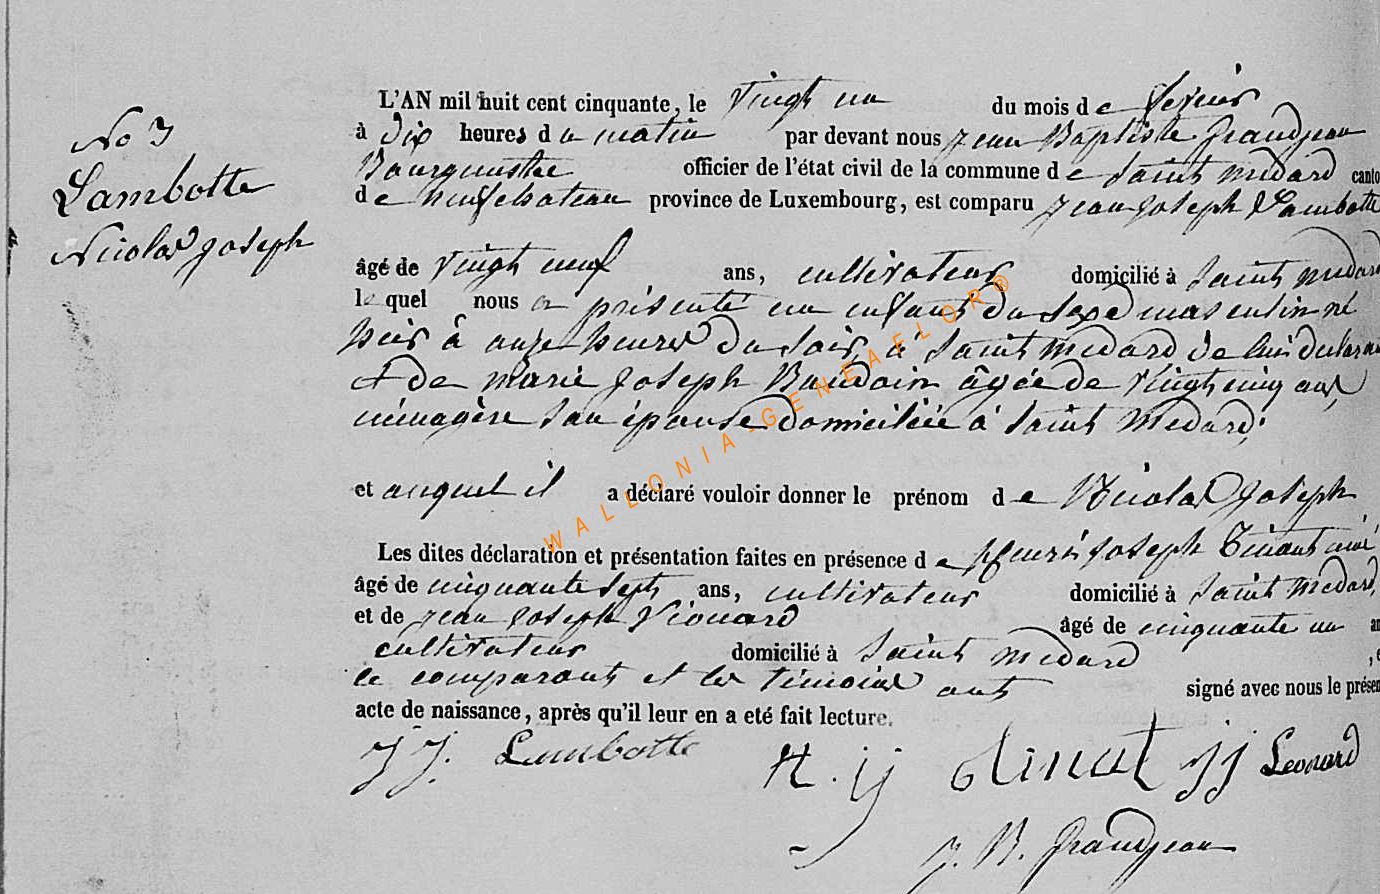 No 3
Lambotte
Nicolas joseph
L'AN mil huit cent cinquante, le Vingt un du mois de fevrier
à Dix heures du matin par devant nous jean Baptiste grandjean
Bourgmestre officier de l'état civil de la commune de Saint médard canto
de neufchateau province de Luxembourg, est comparu jean joseph Lambotte
âgé de vingt neuf ans, cultivateur domicilié à Saint médard
le quel nous a présenté un enfant du sexe masculin né
hier à onze heures du soir, à Saint médard de lui déclarant
et de marie joseph Baudoin âgée de vingt cinq ans,
ménagère son épouse domiciliée à Saint Médard,
et auquel il a déclaré vouloir donner le prénom de Nicolas joseph
Les dites déclaration et présentation faites en présence de henri joseph Tinant
âgé de cinquante sept ans, cultivateur domicilié à Saint médard,
et de jean joseph Léonard âgé de cinquante un an
cultivateur domicilié à Saint médard , e
le comparant et les témoins ont signé avec nous le présen
acte de naissance, après qu'il leur en a eté fait lecture.
J J. Lambotte H. j tinant jj Leonard
j. B. grandjean
WALLONIA-GENEAFLOR®